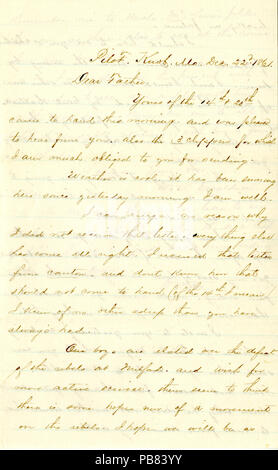 Pilot Knob, Mo. Dec. 22nd 1861
Dear Father
Yours of the 14th & 20th
came to hand this morning and was pleased
to hear from you. also the 3 clippers for which
I am much obliged to you for sending.
Weather is cool. it has been snowing
here since yesterday morning. I am well.
I can no reason why
I did not receive that letter. everything else
has come all right. I received that letter
from canton. and don't know how that
should not come to hand (of the 10th I mean)
I know of no other except them you have
always had.
Our boys are elated on the defeat
of the rebels at Milford and wish for
more active service. them seem to think
there is some hopes now of a movement
on the rebels. I hope we will be as
alamy
Image ID: PB83YY
www.alamy.com